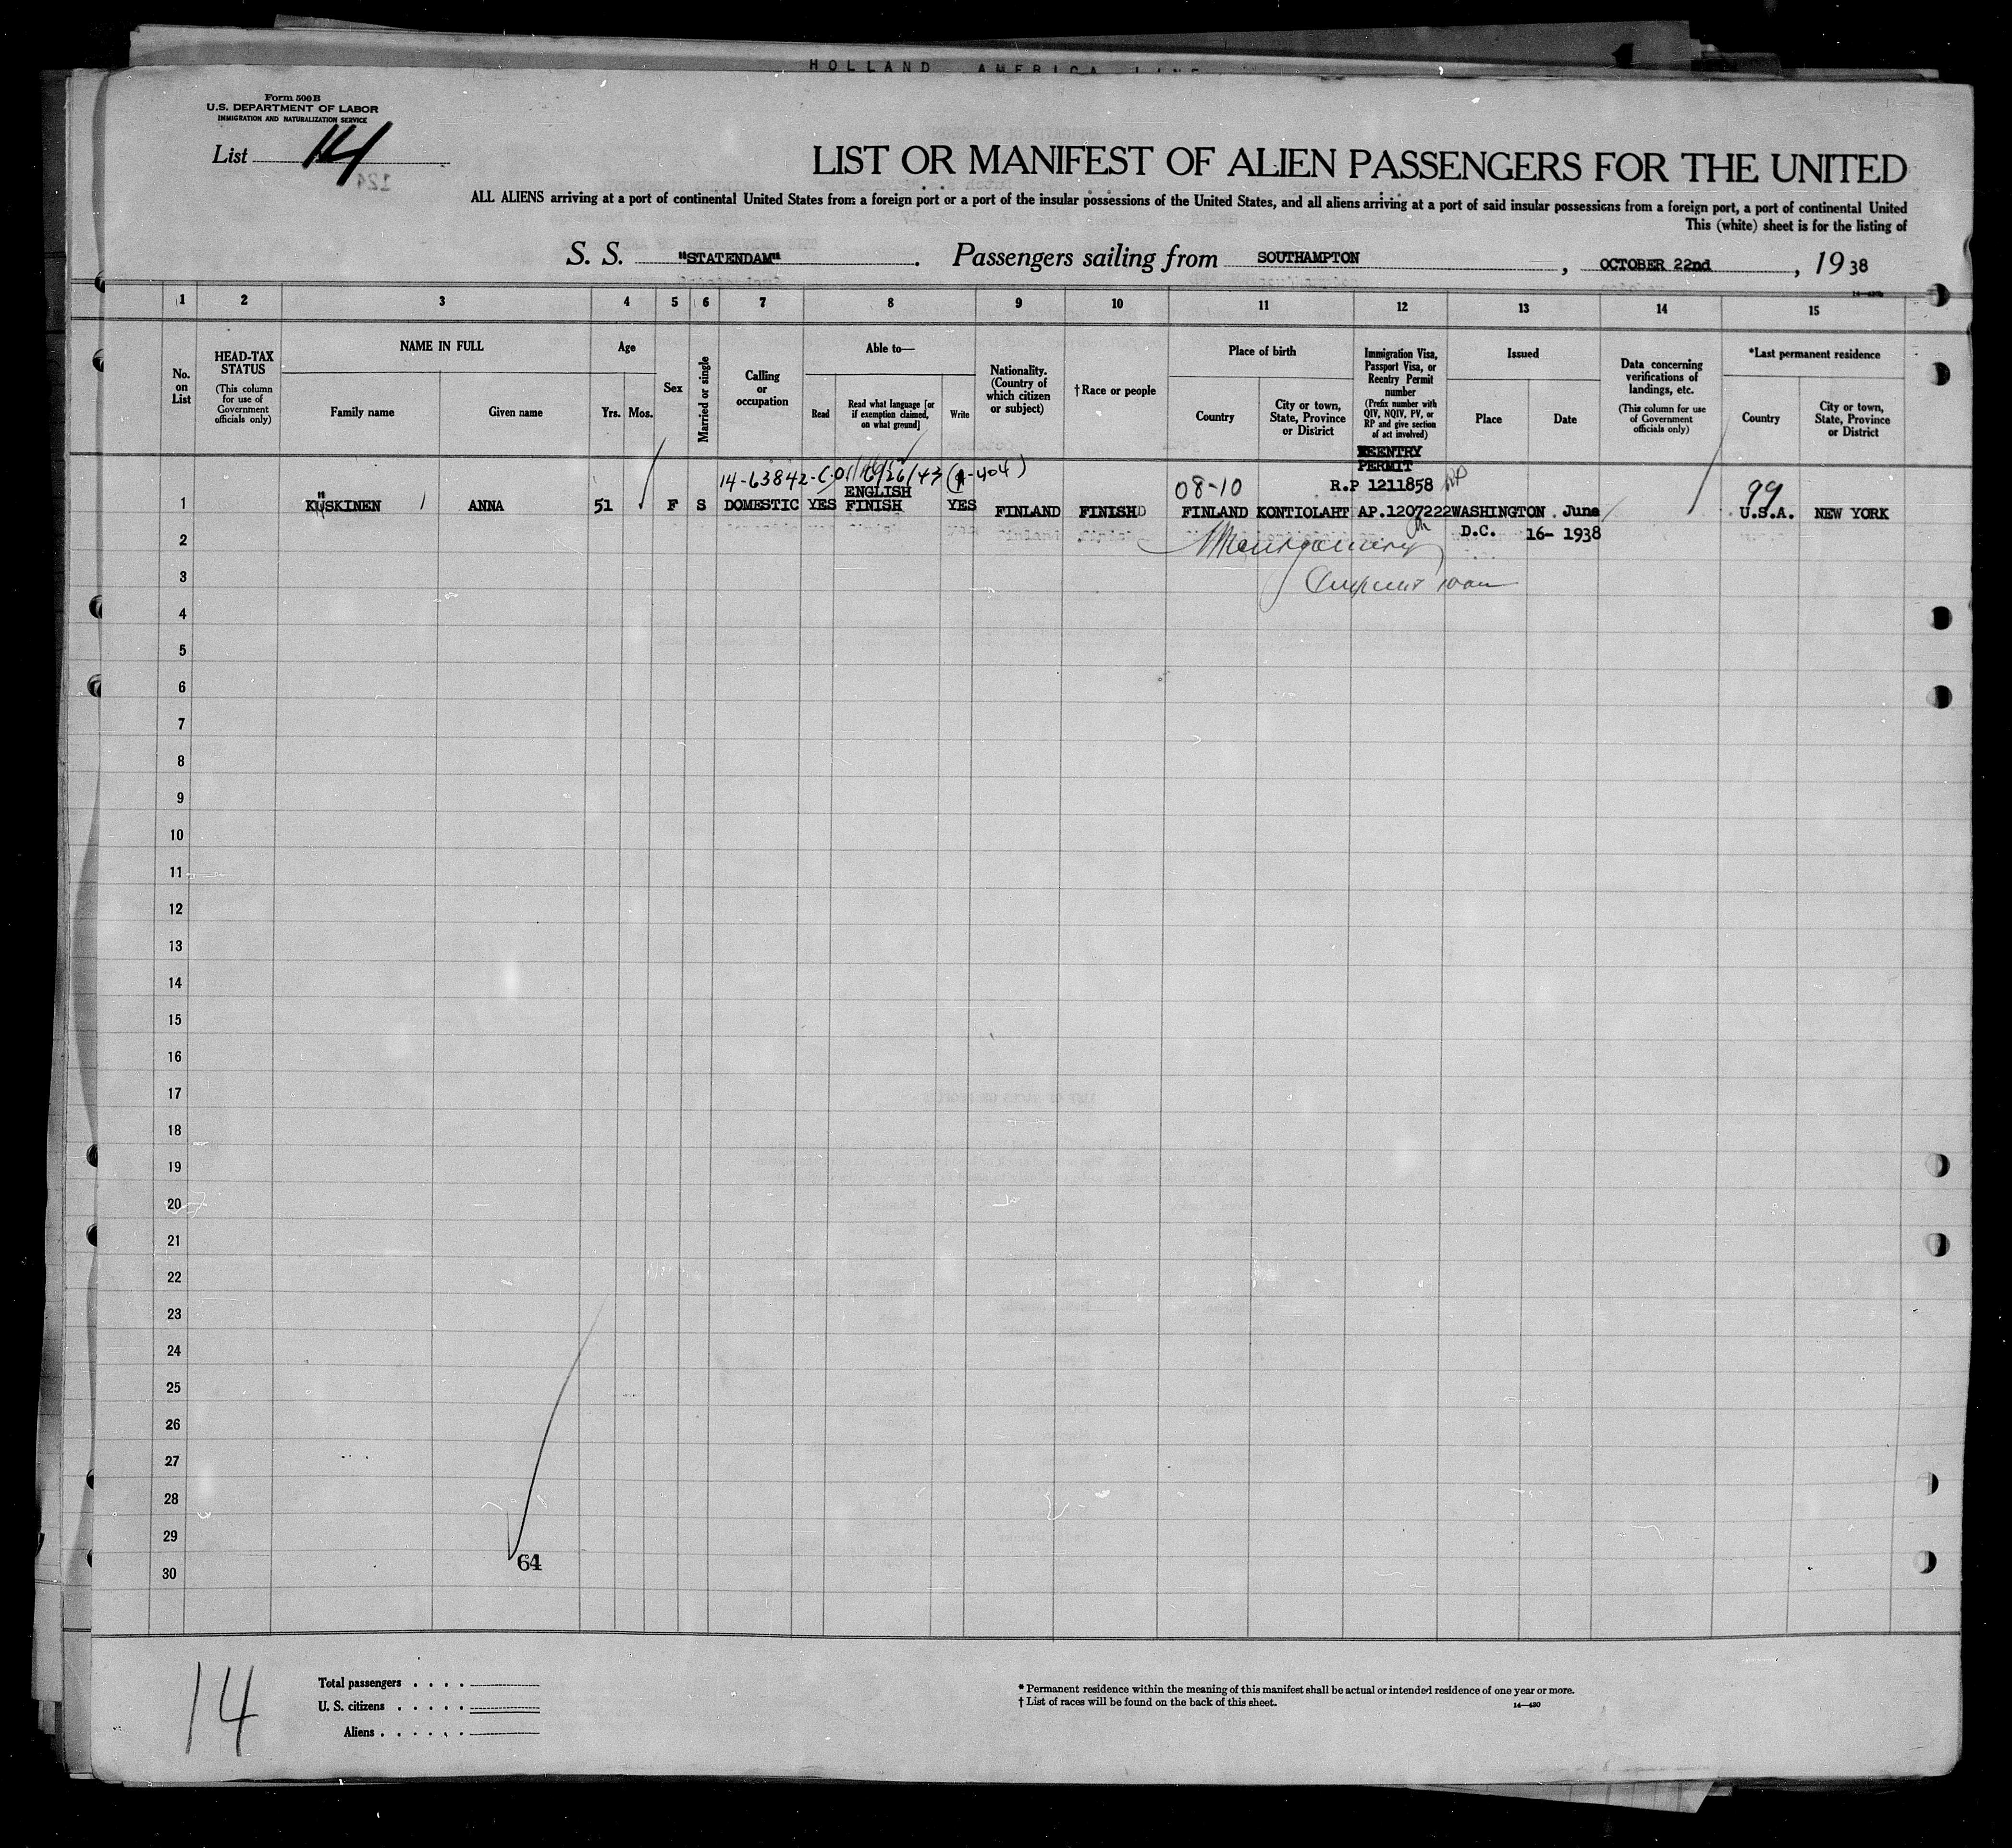 HOLLAND AMERICA LINE
Form 500 B
U.S. DEPARTMENT OF LABOR
IMMIGRATION AND NATURALIZATION SERVICE
List 14
124
LIST OR MANIFEST OF ALIEN PASSENGERS FOR THE UNITED
ALL ALIENS arriving at a port of continental United States from a foreign port or a port of the insular possessions of the United States, and all aliens arriving at a port of said insular possessions from a foreign port, a port of continental United
This (white) sheet is for the listing of
S. S. "STATENDAM". Passengers sailing from SOUTHAMPTON, OCTOBER 22nd, 1938
1 2 3 4 5 6 7 8 9 10 11 12 13 14 15
No. on List
HEAD-TAX STATUS
(This column for use of Government officials only)
NAME IN FULL
Family name
Given name
Age
Yrs. Mos.
Sex
Married or single
Calling or occupation
Able to—
Read
Read what language [or if exemption claimed, on what ground]
Write
Nationality. (Country of which citizen or subject)
† Race or people
Place of birth
Country
City or town, State, Province or District
Immigration Visa, Passport Visa, or Reentry Permit number
(Prefix number with QIV, NQIV, PV, or RP and give section of act involved)
Issued
Place
Date
Data concerning verifications of landings, etc.
(This column for use of Government officials only)
*Last permanent residence
Country
City or town, State, Province or District
REENTRY
PERMIT
14-63842- 6/26/43 (A-404)
ENGLISH
08-10
R.P 1211858 RP
99
1 KÜSKINEN ANNA 51 F S DOMESTIC YES FINISH YES FINLAND FINISH FINLAND KONTIOLAHT AP.1207222 WASHINGTON June U.S.A. NEW YORK
2 Montgomery D.C. 16- 1938
3
4
5
6
7
8
9
10
11
12
13
14
15
16
17
18
19
20
21
22
23
24
25
26
27
28
29
30
64
14
Total passengers . . . .
U. S. citizens . . . . .
Aliens . . . . . .
* Permanent residence within the meaning of this manifest shall be actual or intended residence of one year or more.
† List of races will be found on the back of this sheet.
14—430